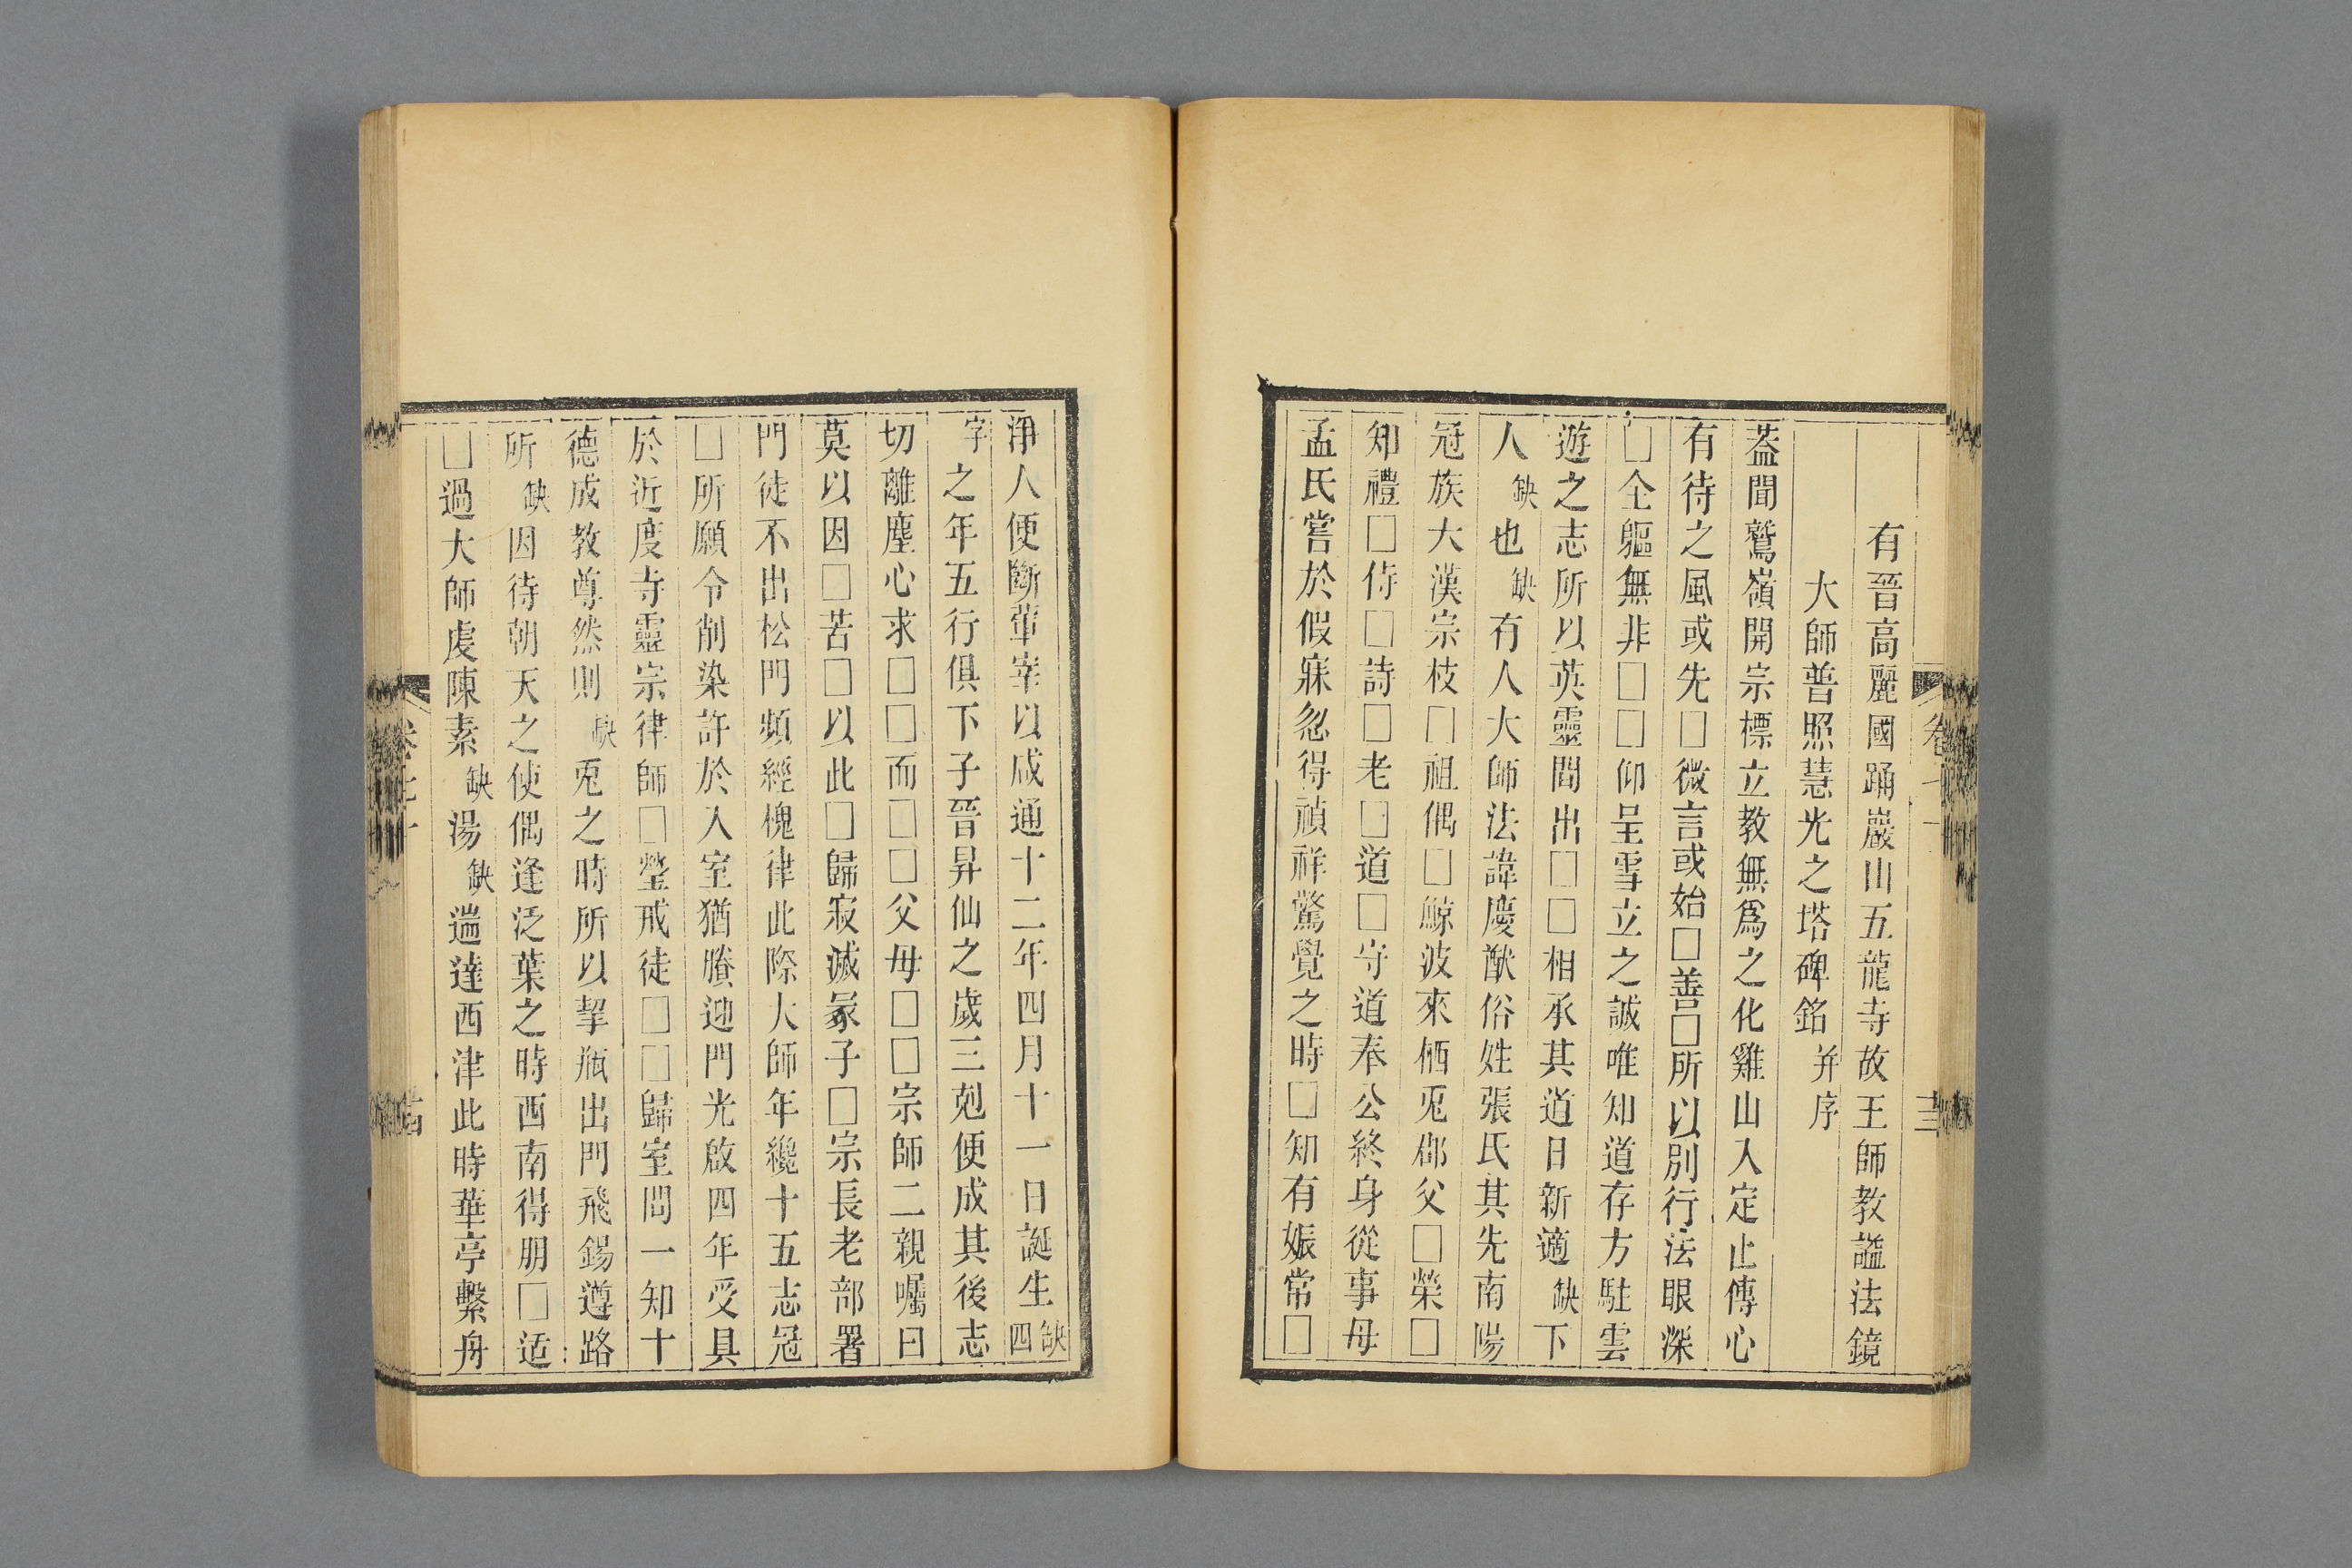 有晉高麗國踊巖山五龍寺故王師教謚法鏡
大師普照慧光之塔碑銘并序
蓋聞鷲嶺開宗標立教無爲之化雞山入定止傳心
有待之風或先□微言或始□善□所以別行法眼深
□仝軀無非□□仰呈雪立之誠唯知道存方駐雲
遊之志所以英靈間出□□相承其道日新適缺下
人缺也缺有人大師法諱慶猷俗姓張氏其先南陽
冠族大漢宗枝□祖偶□鯨波來栖兎郡父□榮□
知禮□侍□詩□老□道□守道奉公終身從事母
孟氏嘗於假寐忽得禎祥驚覺之時□知有娠常□
淨人便斷葷宰以咸通十二年四月十一日誕生缺四
字之年五行俱下子晉昇仙之歲三剋便成其後志
切離塵心求□□而□□父母□□宗師二親囑曰
莫以因□苦□以此□歸寂滅冡子□宗長老部署
門徒不出松門頻經槐律此際大師年纔十五志冠
□所願令削染許於入室猶賸迎門光啟四年受具
於近度寺靈宗律師□瑩戒徒□□歸室問一知十
德成教尊然則缺兎之時所以挈瓶出門飛錫遵路
所缺因待朝天之使偶逢泛葉之時西南得朋□适
□過大師虔陳素缺湯缺遄達西津此時華亭繫舟